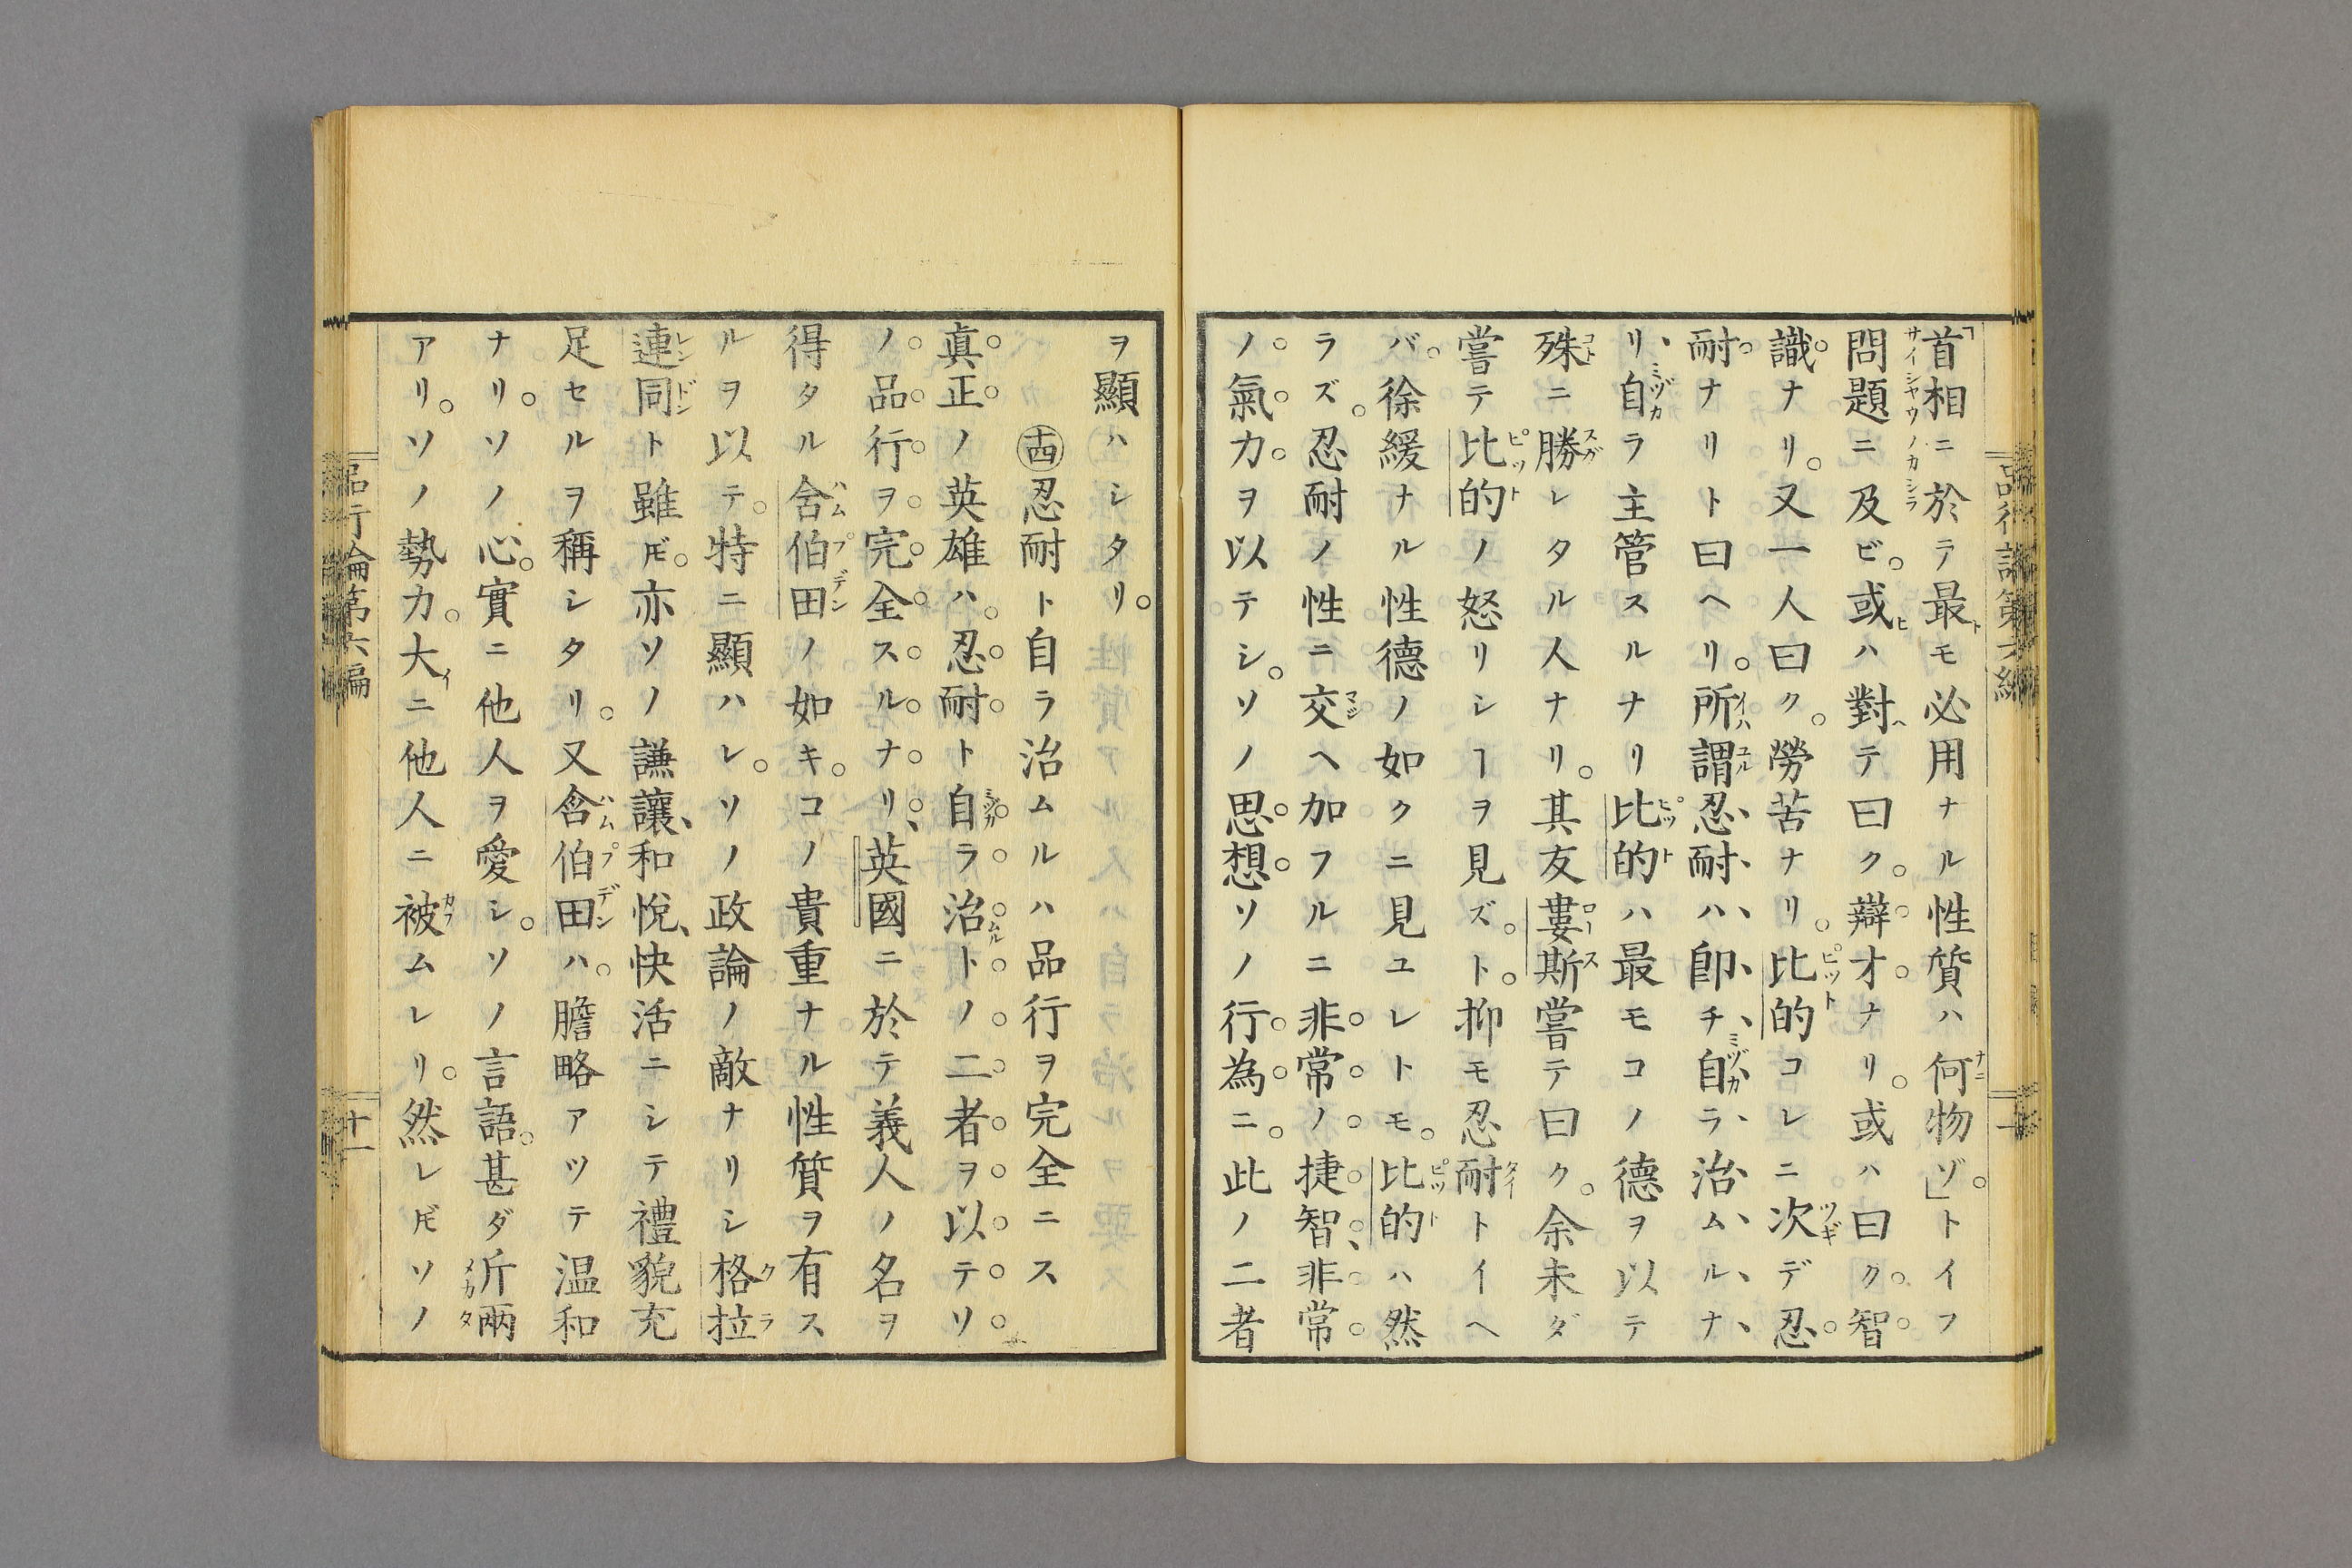 首相ニ於テ最モ必用ナル性質ハ何物ゾ」トイフ
問題ニ及ビ。或ハ對テ曰ク。辯才ナリ。或ハ曰ク智
識ナリ。又一人曰ク。勞苦ナリ。比的コレニ次デ忍
耐ナリト曰ヘリ。所謂忍耐ハ卽チ自ラ治ムルナ
リ、自ラ主管スルナリ比的ハ最モコノ德ヲ以テ
殊ニ勝レタル人ナリ。其友婁斯嘗テ曰ク。余未ダ
嘗テ比的ノ怒リシヿヲ見ズ。ト。抑モ忍耐トイヘ
バ。徐緩ナル性德ノ如クニ見ユレトモ。比的ハ然
ラズ。忍耐ノ性ニ交ヘ加フルニ非常ノ捷智、非常
ノ氣力ヲ以テシ。ソノ思想ソノ行為ニ。此ノ二者
ヲ顯ハシタリ。
㊉四忍耐ト自ラ治ムルハ品行ヲ完全ニス
真正ノ英雄ハ。忍耐ト自ラ治トノ二者ヲ以テリ
ノ品行ヲ完全スルナリ、英國ニ於テ義人ノ名ヲ
得タル含伯田ノ如キ。コノ貴重ナル性質ヲ有ス
ルヲ以テ。特ニ顯ハレ。ソノ政論ノ敵ナリシ格拉
連同ト雖𪜈。亦ソノ謙讓、和悅、快活ニシテ禮貌充
足セルヲ稱シタリ。又含伯田ハ。膽略アツテ温和
ナリ。ソノ心。實ニ他人ヲ愛シ。ソノ言語。甚ダ斤兩
アリ。ソノ勢力。大ニ他人ニ被ムレリ。然レ𪜈ソノ
品行論第六編
十一